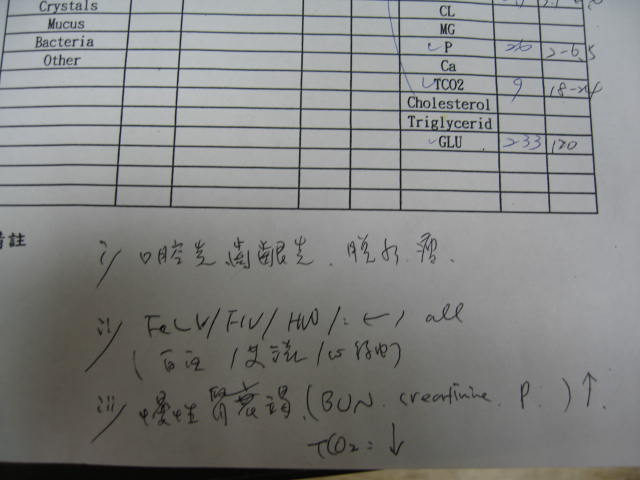 Crystals
CL
Mucus
MG
Bacteria
P 26 2-6.5
Other
Ca
TCO2 9 18-24
Cholesterol
Triglycerid
GLU 233 170
備註
i/ 口腔炎 齒齦炎. 脫水
ii/ FeLV/FIV/HW/: (-) all
iii/ 慢性腎衰竭. (BUN. creatinine. P. ) ↑.
TCO2: ↓